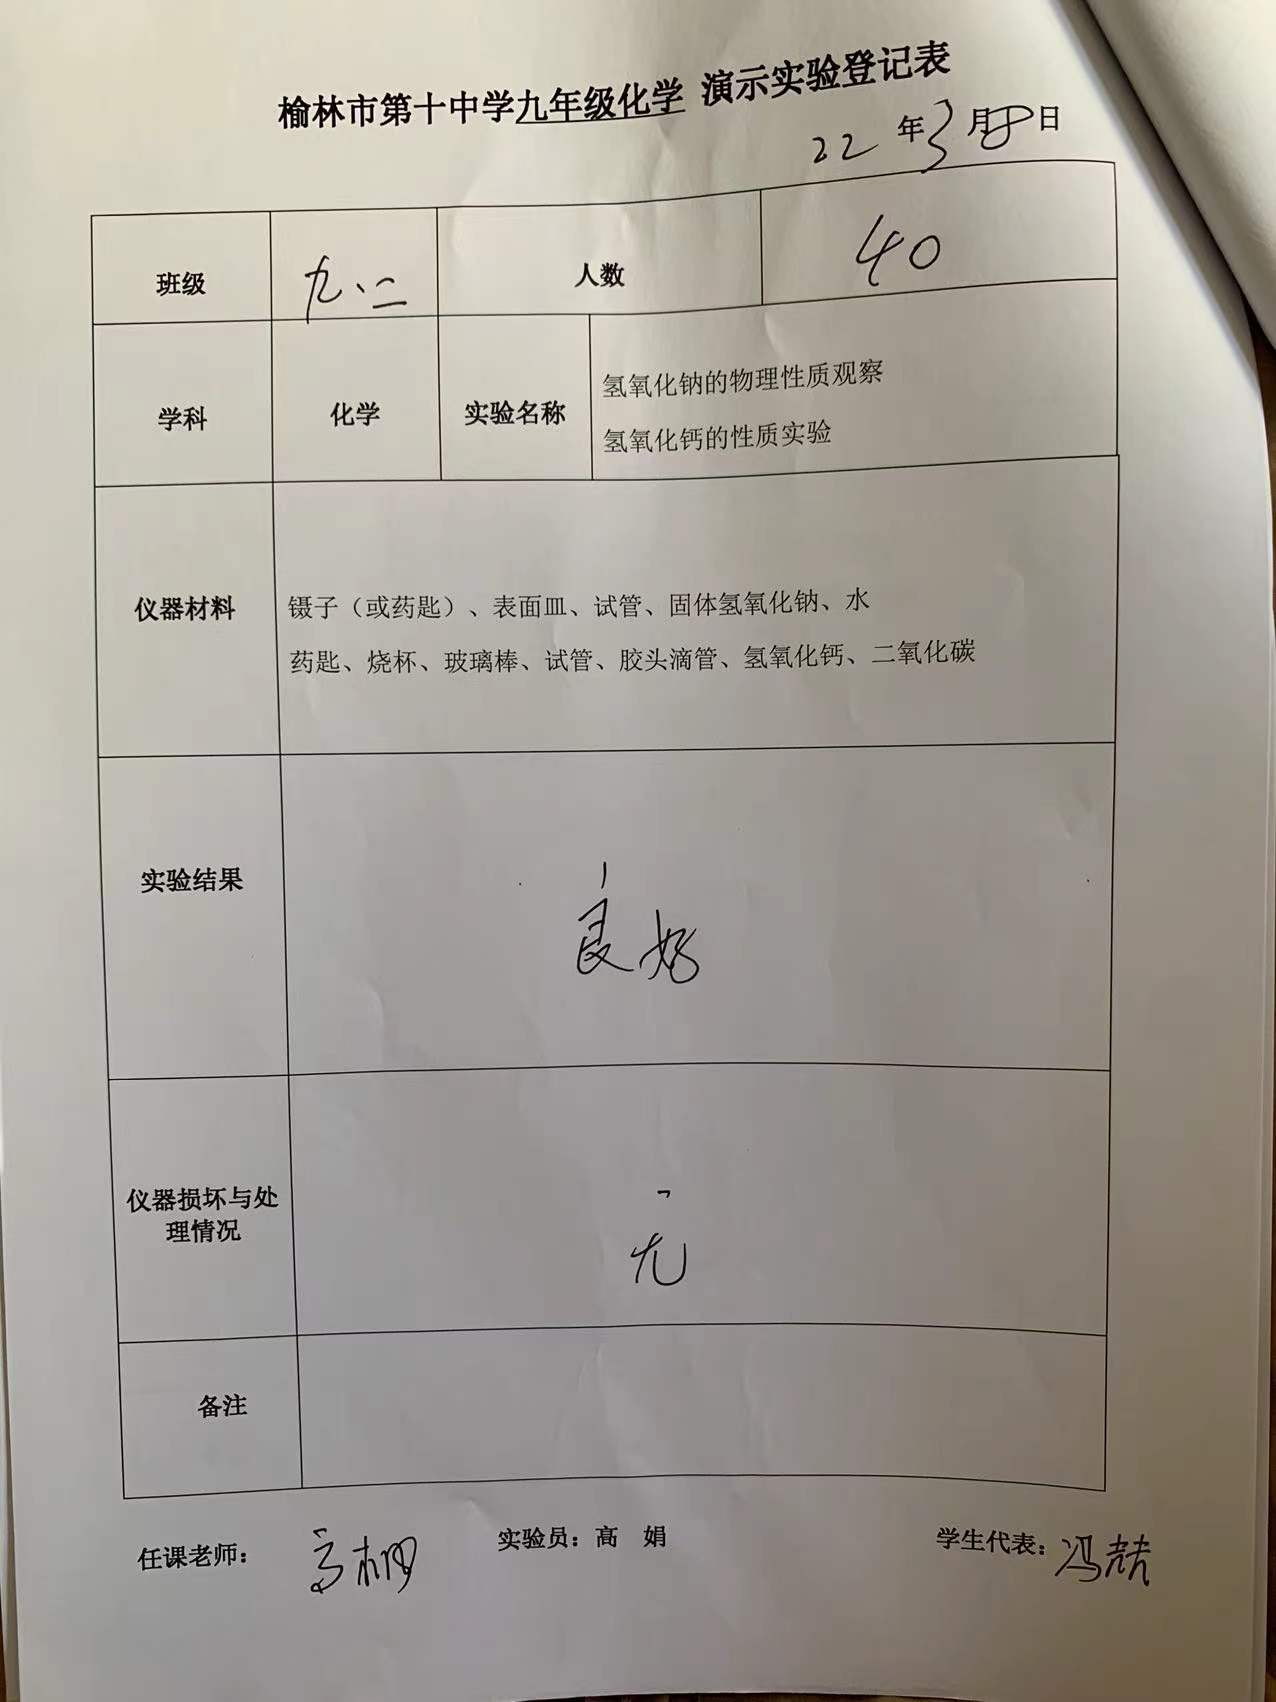 榆林市第十中学九年级化学 演示实验登记表
22年3月8日
班级 九、二 人数 40
学科 化学 实验名称 氢氧化钠的物理性质观察
氢氧化钙的性质实验
仪器材料 镊子（或药匙）、表面皿、试管、固体氢氧化钠、水
药匙、烧杯、玻璃棒、试管、胶头滴管、氢氧化钙、二氧化碳
实验结果 良好
仪器损坏与处
理情况 无
备注
任课老师： 实验员：高 娟 学生代表：冯喆